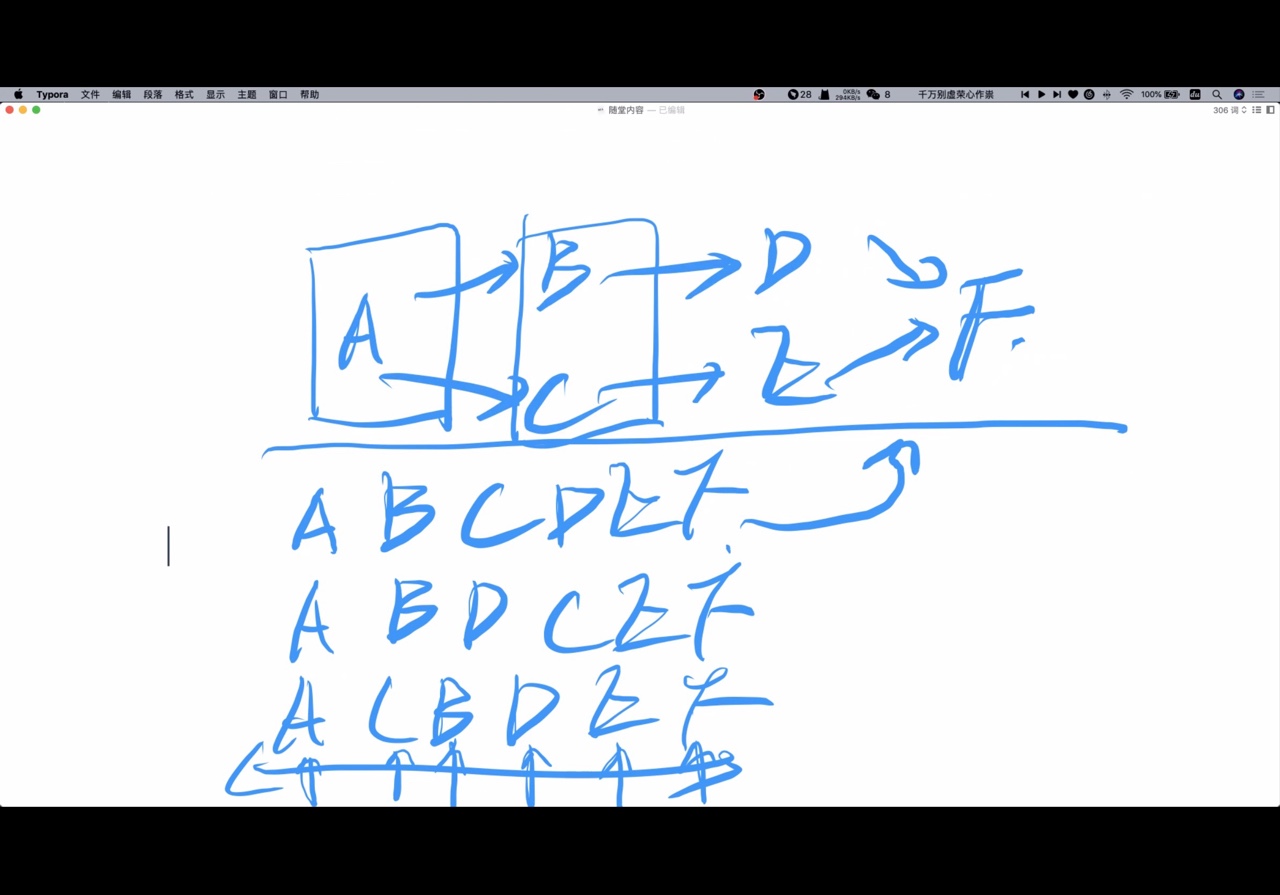 Typora 文件 编辑 段落 格式 显示 主题 窗口 帮助 28 0KB/s 294KB/s 8 千万别虚荣心作祟 100%
随堂内容 — 已编辑 306 词
B D
A F
C E
A B C D E F
A B D C E F
A C B D E F